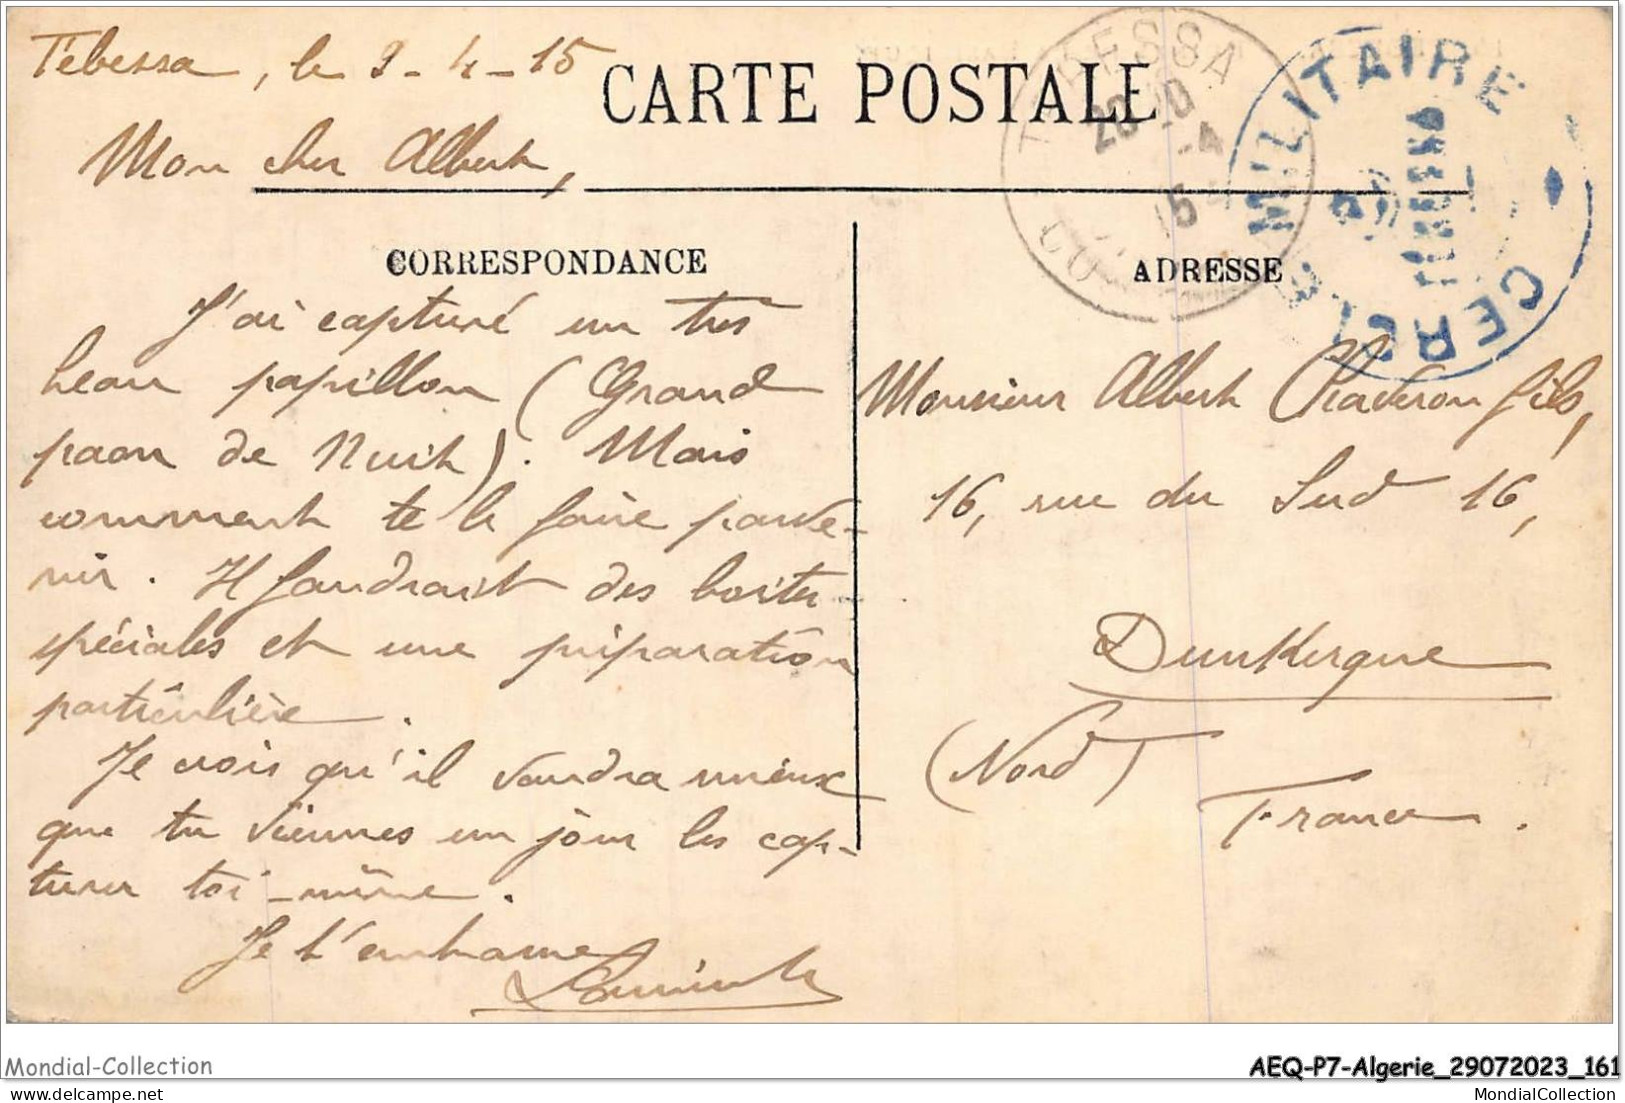 Tébessa, le 9-4-15
CARTE POSTALE
TEBESSA
20
-4
15
CERCLE MILITAIRE
TEBESSA
Mon cher Albert,
CORRESPONDANCE
J'ai capturé un très
beau papillon (Grand
paon de Nuit). Mais
comment te le faire parve-
nir. Il faudrait des boites
spéciales et une préparation
particulière.
Je crois qu'il vaudra mieux
que tu viennes un jour les cap-
turer toi-même.
Je t'embrasse
ADRESSE
Monsieur Albert Chaderon fils,
16, rue du Sud 16,
Dunkerque
(Nord)
France.
Mondial-Collection
AEQ-P7-Algerie_29072023_161
delcampe.net
MondialCollection